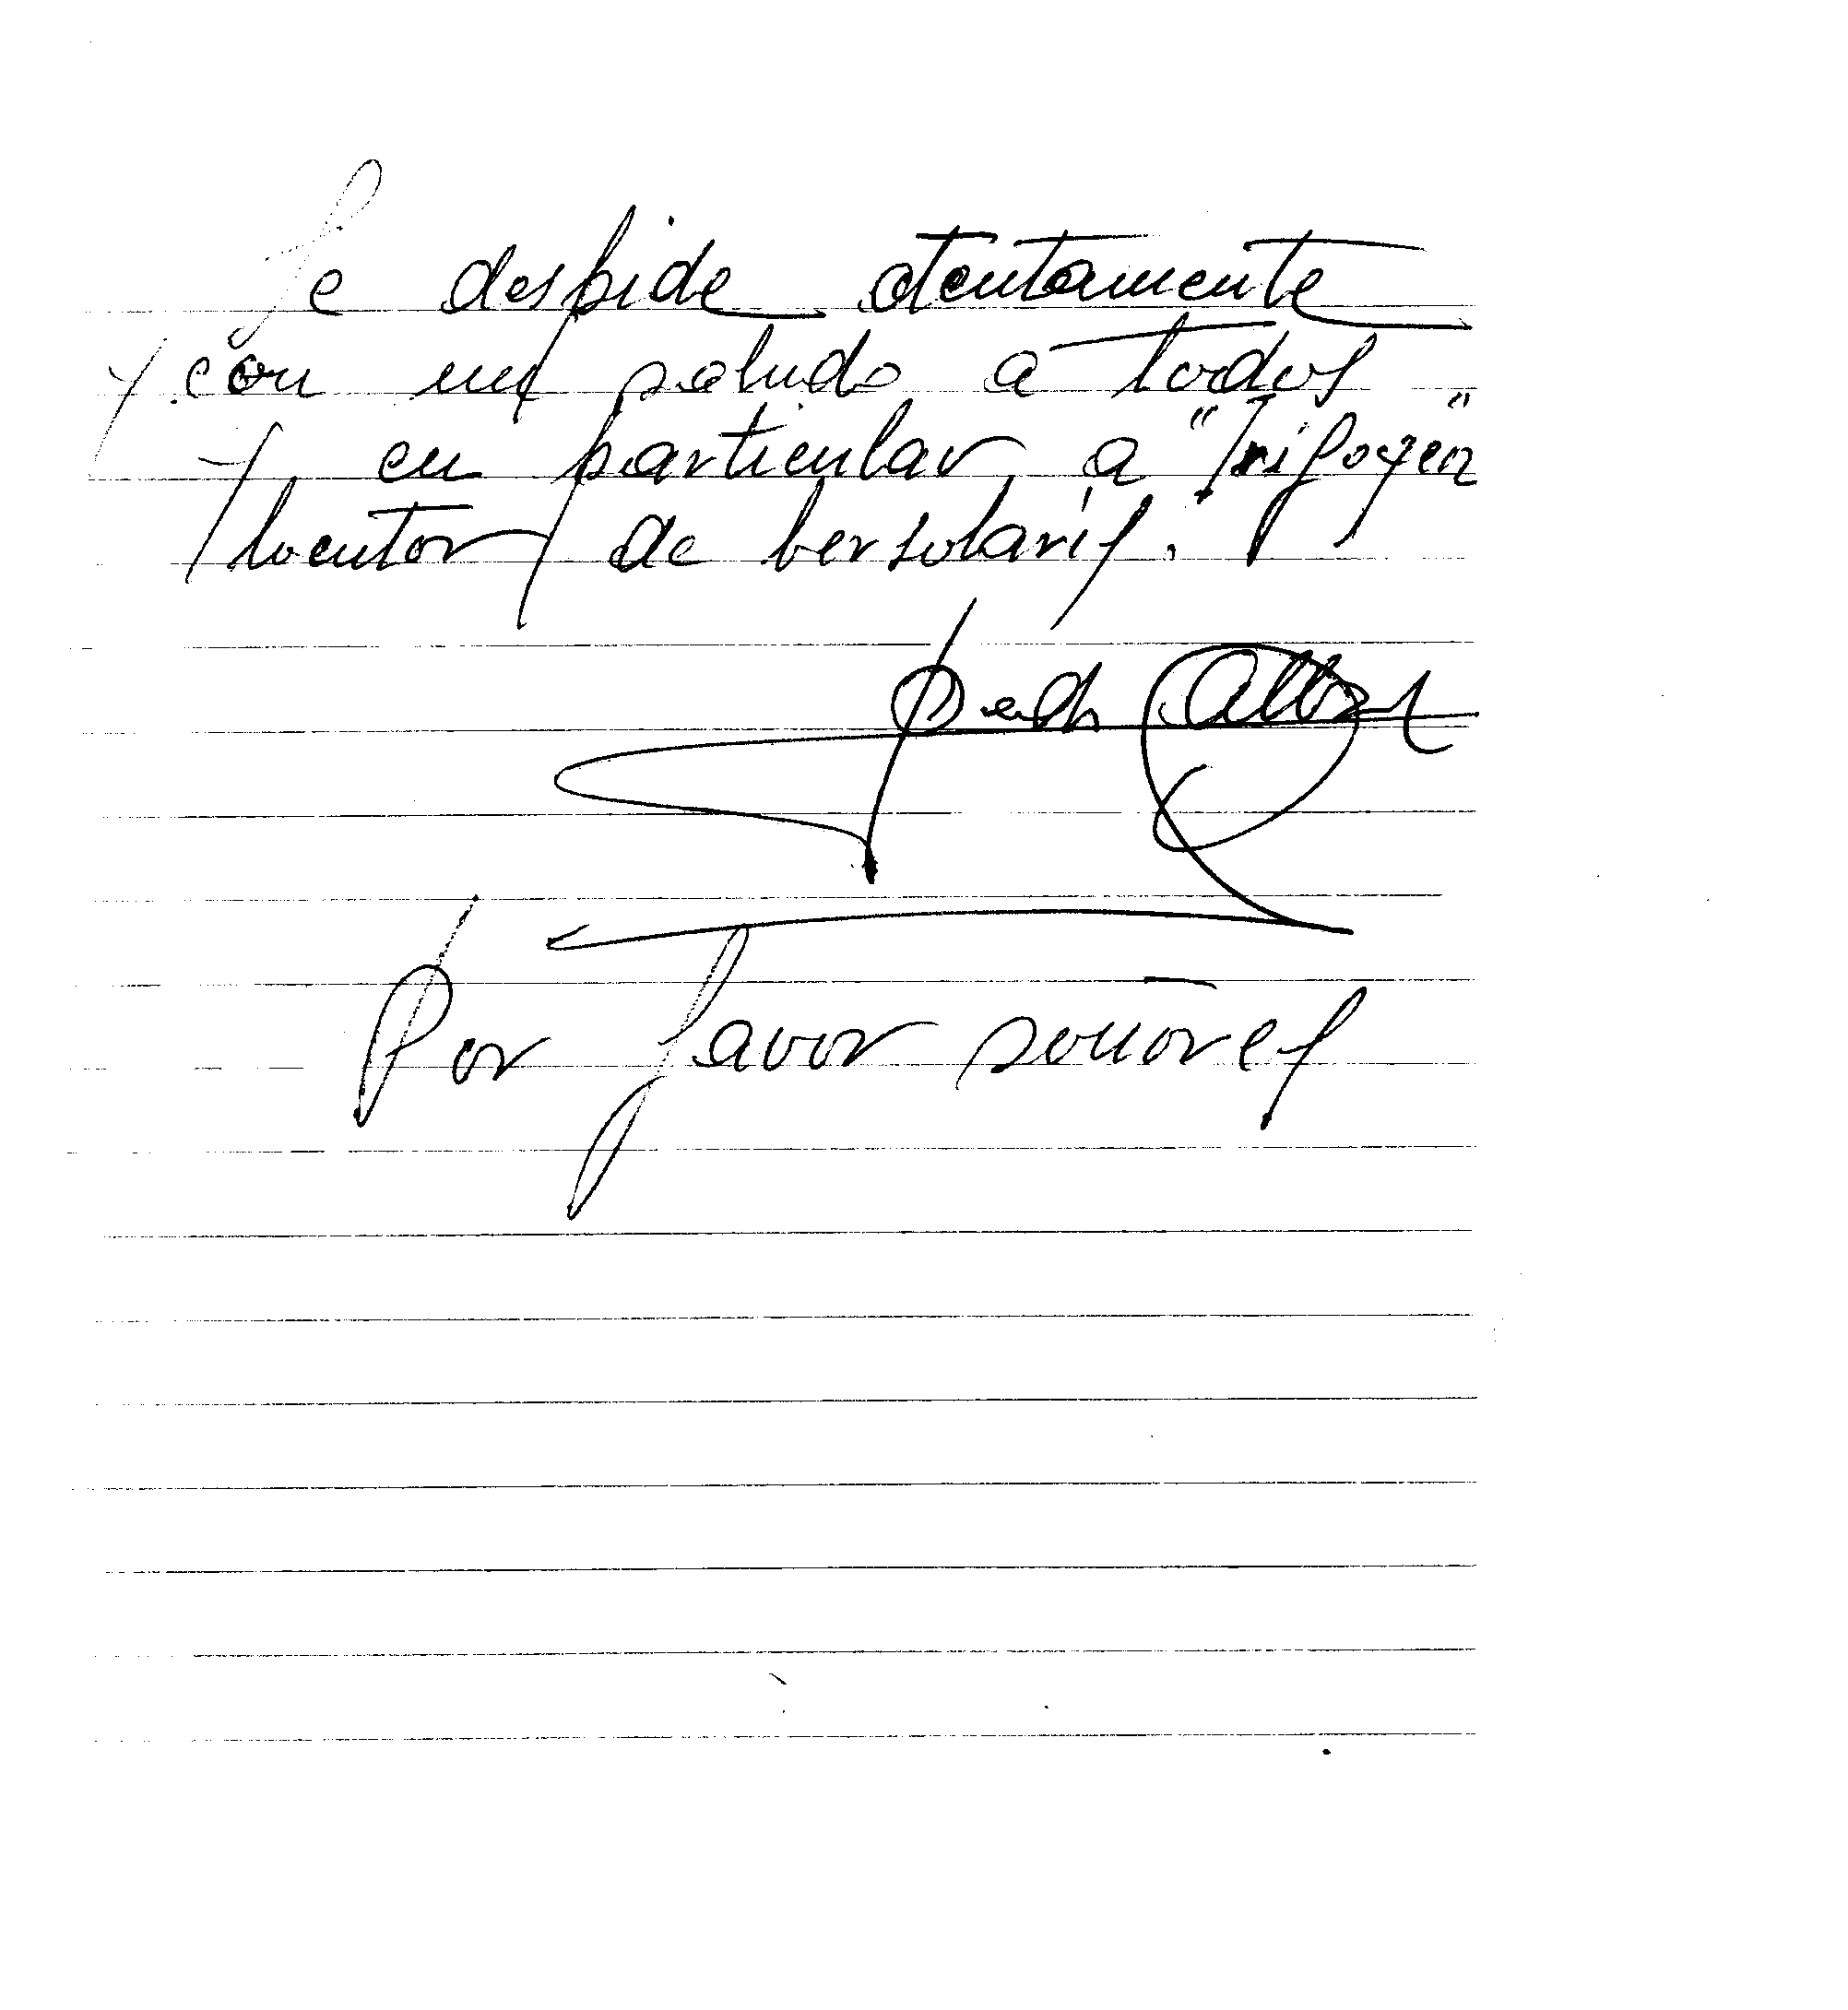 Se despide atentamente
y con un saludo a todos
y en particular a "Iripoyen"
locutor de bersolaris.
Por favor señores